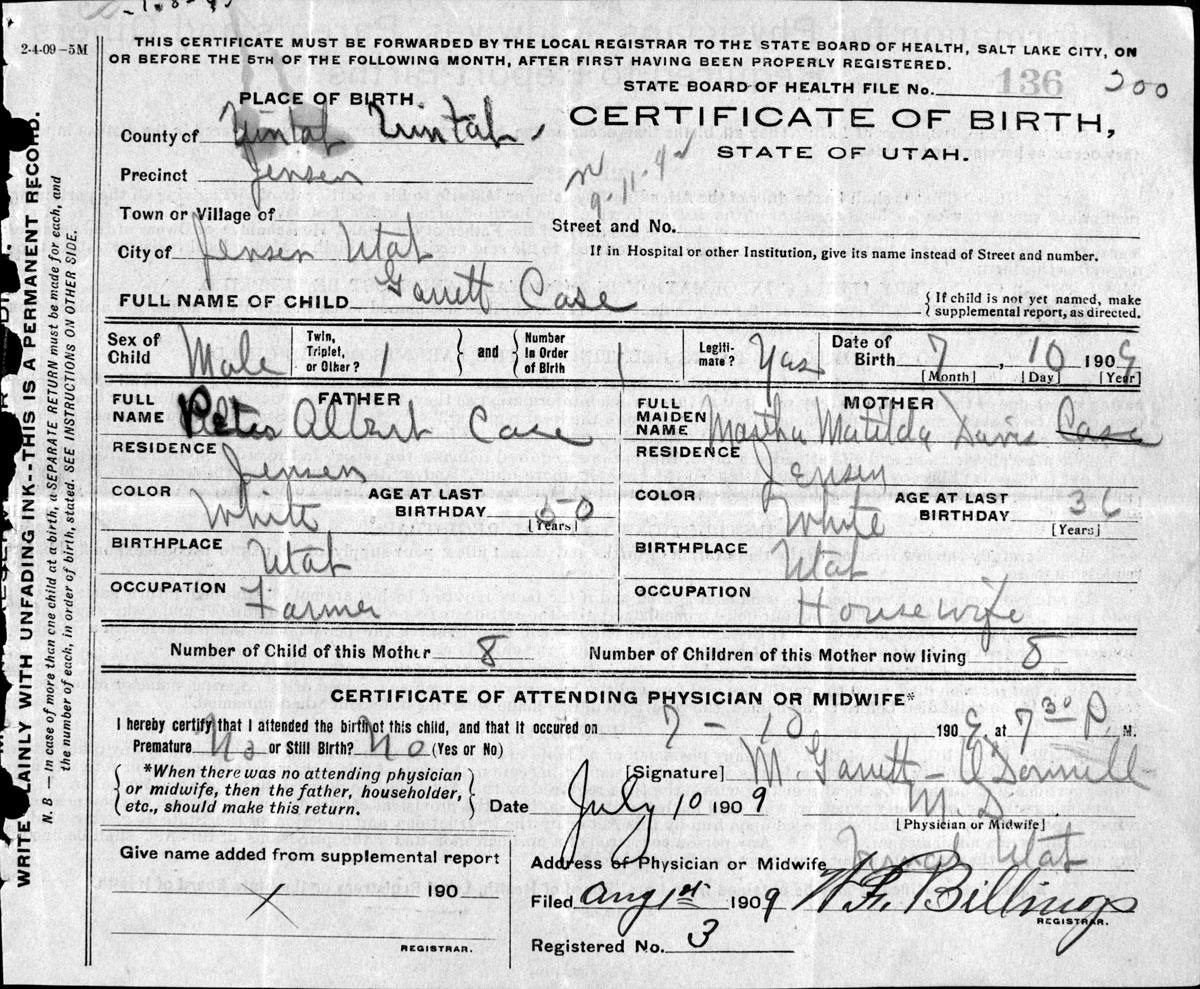 2-4-09-5M
THIS CERTIFICATE MUST BE FORWARDED BY THE LOCAL REGISTRAR TO THE STATE BOARD OF HEALTH, SALT LAKE CITY, ON
OR BEFORE THE 5TH OF THE FOLLOWING MONTH, AFTER FIRST HAVING BEEN PROPERLY REGISTERED.
STATE BOARD OF HEALTH FILE No. 136 300
PLACE OF BIRTH.
CERTIFICATE OF BIRTH,
STATE OF UTAH.
County of Uintah
Precinct Jensen
Town or Village of
Street and No.
City of Jensen Utah
If in Hospital or other Institution, give its name instead of Street and number.
FULL NAME OF CHILD Garrett Case
{ If child is not yet named, make
supplemental report, as directed.
Sex of Child Male
Twin, Triplet, or Other? 1
and
Number in Order of Birth 1
Legitimate? Yas
Date of Birth 7, 10 1909
[Month] [Day] [Year]
FATHER
FULL NAME Peter Albert Case
RESIDENCE Jensen
COLOR White
AGE AT LAST BIRTHDAY 50
[Years]
BIRTHPLACE Utah
OCCUPATION Farmer
MOTHER
FULL MAIDEN NAME Martha Matilda Davis Case
RESIDENCE Jensen
COLOR White
AGE AT LAST BIRTHDAY 36
[Years]
BIRTHPLACE Utah
OCCUPATION Housewife
Number of Child of this Mother 8
Number of Children of this Mother now living 8
CERTIFICATE OF ATTENDING PHYSICIAN OR MIDWIFE*
I hereby certify that I attended the birth of this child, and that it occured on 7 - 10, 1909, at 7 30 P. M.
Premature No or Still Birth? No (Yes or No)
*When there was no attending physician
or midwife, then the father, householder,
etc., should make this return.
[Signature] M. Garrett-O'Donnell-
M.D.
[Physician or Midwife]
Date July 10 1909
Address of Physician or Midwife Jensen Utah
Give name added from supplemental report
190
REGISTRAR.
Filed Aug 1st 1909 W. F. Billings
REGISTRAR.
Registered No. 3
WRITE PLAINLY WITH UNFADING INK--THIS IS A PERMANENT RECORD.
N. B. — In case of more than one child at a birth, a SEPARATE RETURN must be made for each, and
the number of each, in order of birth, stated. SEE INSTRUCTIONS ON OTHER SIDE.